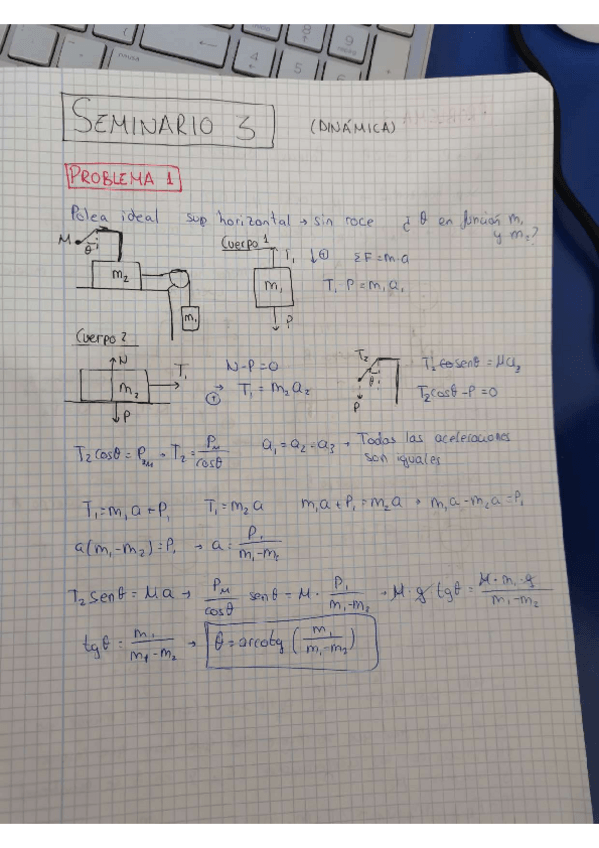 SEMINARIO 3 (DINÁMICA)
PROBLEMA 1
Polea ideal sup horizontal → sin roce ¿θ en función m₁
y m₂?
M
θ
m₂
m₁
Cuerpo 1
T₁
↓⊕
m₁
P
ΣF=m·a
T₁-P=m₁a₁
Cuerpo 2
N
m₂
T₁
P
N-P=0
⊕ T₁=m₂a₂
T₂
θ
P
T₂senθ=Ma₃
T₂cosθ-P=0
T₂cosθ=P_M → T₂=P_M/cosθ a₁=a₂=a₃ → Todas las aceleraciones
son iguales
T₁=m₁a+P₁ T₁=m₂a m₁a+P₁=m₂a → m₁a-m₂a=P₁
a(m₁-m₂)=P₁ → a=P₁/m₁-m₂
T₂senθ=Ma → P_M/cosθ senθ=M·P₁/m₁-m₂ → M·g tgθ=M·m₁·g/m₁-m₂
tgθ=m₁/m₁-m₂ → θ=arcotg(m₁/m₁-m₂)